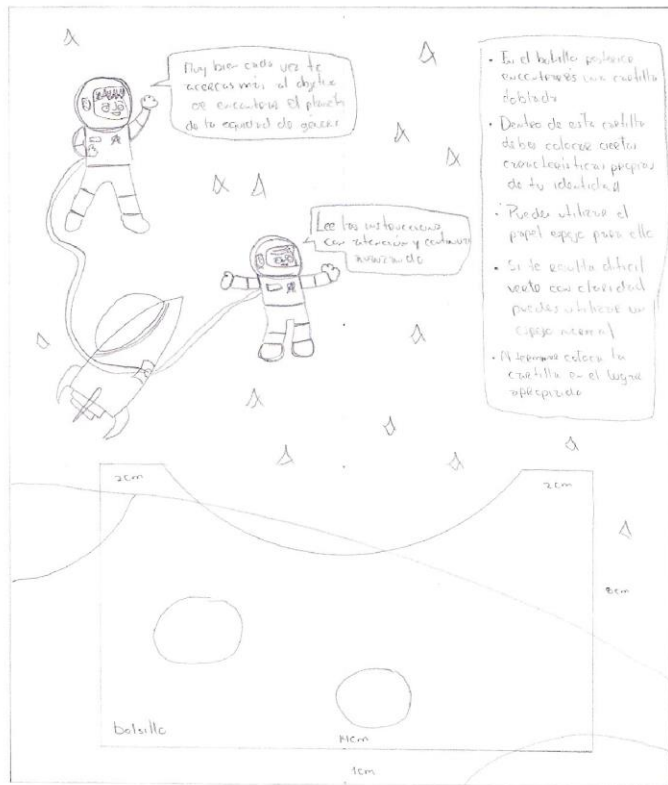 Muy bien cada vez te
acercas más al objetivo
de encontrar el planeta
de la equidad de género
Lee las instrucciones
con atención y continua
avanzando
• En el bolsillo posterior
encontrarás una cartilla
doblada
• Dentro de esta cartilla
debes colocar ciertas
características propias
de tu identidad
• Puedes utilizar el
papel espejo para ello
• Si te resulta difícil
verte con claridad
puedes utilizar un
espejo normal
• Al terminar coloca la
cartilla en el lugar
apropiado
2cm
2cm
8cm
bolsillo
14cm
1cm